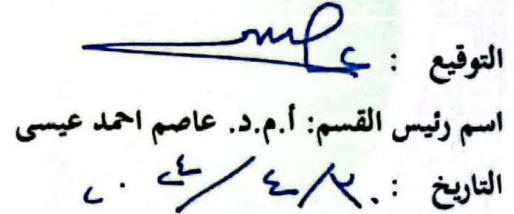 التوقيع :
اسم رئيس القسم: أ.م.د. عاصم احمد عيسى
التاريخ : ٣٠/٤/٢٠٢٤